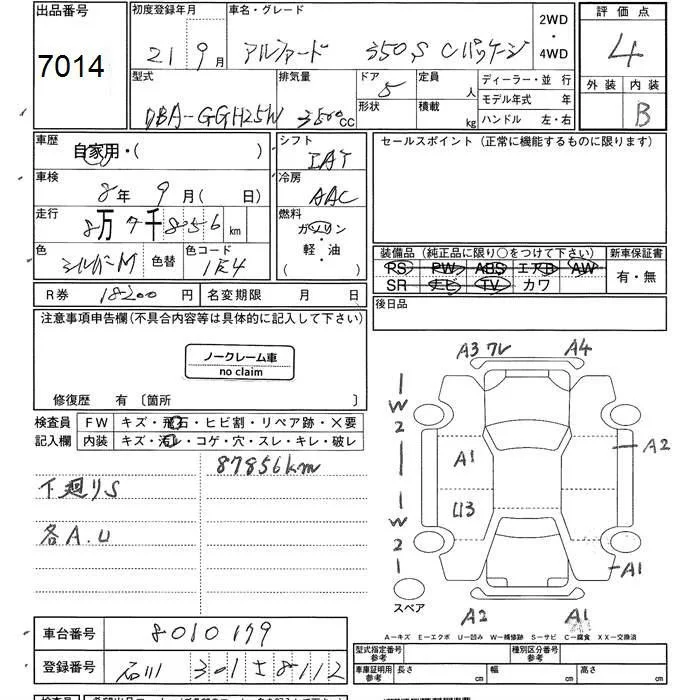 出品番号
7014
初度登録年月
21 9月
車名・グレード
アルファード 350S Cパッケージ
2WD
・
4WD
評価点
4
外装 内装
B
型式
DBA-GGH25W
排気量
3500cc
ドア
5
形状
定員
人
積載
kg
ディーラー・並行
モデル年式 年
ハンドル 左・右
車歴
自家用・( )
車検
8年 9月( 日)
走行
8万7千856km
色
シルバーM
色替
色コード
1E4
シフト
IAT
冷房
AAC
燃料
ガソリン
・
軽・油
( )
セールスポイント (正常に機能するものに限ります)
装備品 (純正品に限り○をつけて下さい)
新車保証書
RS RW ABS エアB AW
SR ナビ TV カワ
有・無
R券 18200円
名変期限 月 日
後日品
注意事項申告欄(不具合内容等は具体的に記入して下さい)
ノークレーム車
no claim
修復歴 有〔箇所 〕
検査員
記入欄
FW キズ・飛石・ヒビ割・リペア跡・×要
内装 キズ・汚レ・コゲ・穴・スレ・キレ・破レ
87856km
下廻りS
各A.U
A3 ワレ A4
W2
A1
A2
U3
W2
A1
スペア
A2 A1
A-キズ E-エクボ U-凹み W-補修跡 S-サビ C-腐食 XX-交換済
車台番号
8010179
登録番号
石川 301 す 8112
型式指定番号
参考
種別区分番号
参考
車庫証明用
参考
長さ cm
幅 cm
高さ cm